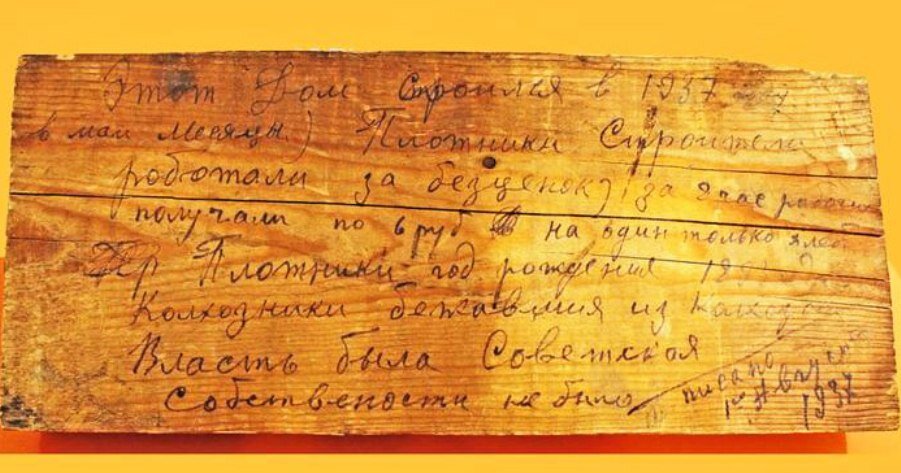 Этот Дом строился в 1937 году
в маи месяцы) Плотники Строители
роботали за безценок) за 8 час работы
получали по 6 руб на один только хлеб
Плотники год рождения
Колхозники бежавшия из Колхозов
Власть была Советская
Собствености не было
писано
1го Августа
1937